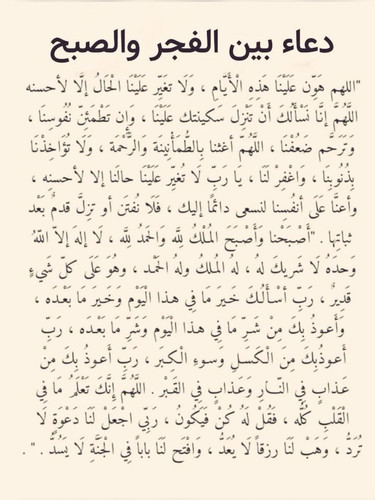 دعاء بين الفجر والصبح
"اللهم هَوِّن عَلَيْنَا هَذِهِ الْأَيَّامِ ، وَلَا تَغيِّر عَلَيْنَا الْحَالُ إلَّا لأحسنه
اللَّهُمَّ إنَّا نَسْأَلُكَ أَنْ تَنْزِلَ سَكينتك عَلَيْنَا ، وَإِن تَطْمَئِنّ نُفُوسِنَا ،
وَتَرَحَّم ضَعُفْنَا ، اللَّهُمّ أغثنا بِالطُّمَأْنِينَةِ وَالرَّحْمَة ، وَلَا تُؤَاخِذْنَا
بِذُنُوبِنَا ، وَاغْفِرْ لَنَا ، يَا رَبِّ لَا تُغيِّر عَلَيْنَا حالَنا إلا لأحسنِه ،
وأعنَّا عَلَى أنفُسنا لنسعى دَائمًا إليك ، فَلا نُفتَن أو تزلَّ قدمٌ بَعْد
ثباتِها . "أَصْبَحْنا وَأَصْبَحَ المُلْكُ لِلَّه وَالحَمدُ لِلَّه ، لَا إلهَ إلّا اللّهُ
وَحدَهُ لَا شَريكَ لهُ ، لهُ المُلكُ ولهُ الحَمْد ، وهُوَ عَلى كلّ شَيءٍ
قَدِيرٌ ، رَبِّ أسْأَلُكَ خَيرَ مَا فِي هذا الْيَوْمِ وَخَيرَ مَا بَعْدَه ،
وَأَعوذُ بِكَ مِنْ شَـرِّ ما فِي هذا الْيَوْمِ وَشَرِّ مَا بَعْدَه ، رَبِّ
أَعوذُبِكَ مِنَ الْكَسَلِ وَسوءِ الْكبَر ، رَبِّ أعوذُ بِكَ مِنْ
عَذابٍ فِي النَّـارِ وَعَذابٍ فِي القَبْرِ . اللَّهمَّ إنَّكَ تَعْلَمُ مَا فِي
الْقَلْبِ كُلِّه ، فَقُلْ لَه كُنْ فَيَكُون ، رَبِّي اجْعَلْ لَنَا دَعْوَةً لَا
تُرَدُّ ، وَهَبْ لَنَا رزقاً لَا يُعَدُّ ، وَافْتح لَنَا باباً فِي الْجَنَّةِ لَا يُسَدُّ . " .